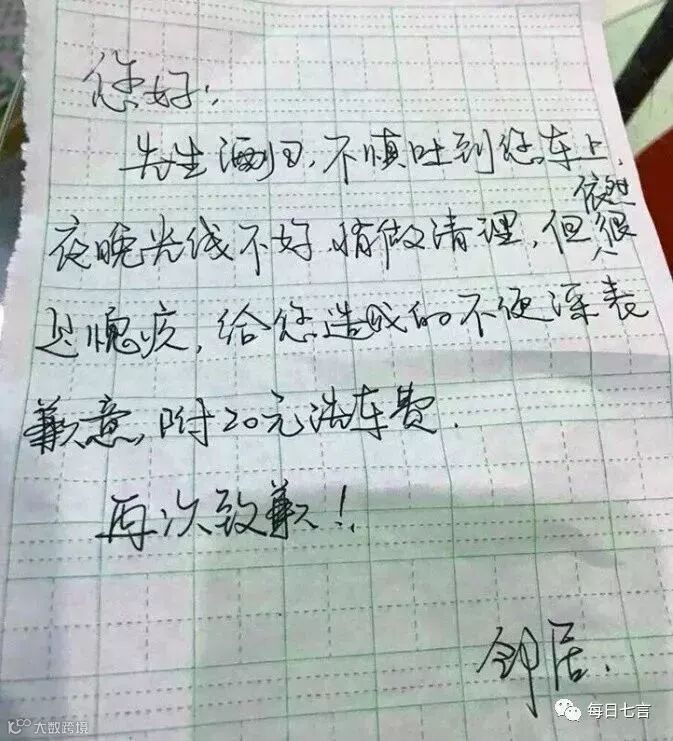 您好:
先生酒归,不慎吐到您车上,
夜晚光线不好,稍微清理,但依然很
愧疚,给您造成的不便深表
歉意,附20元洗车费.
再次致歉!
邻居.
每日七言
大数跨境